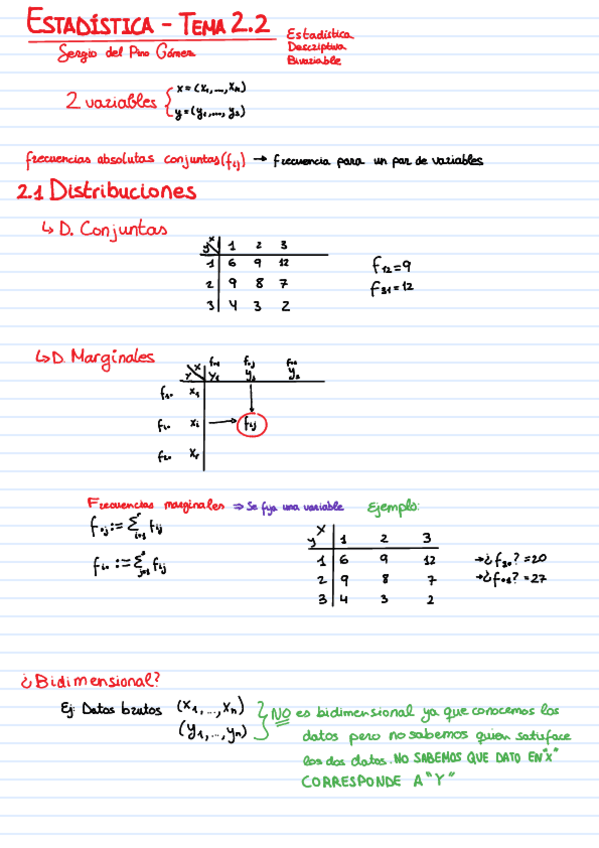 ESTADÍSTICA - TEMA 2.2
Estadística
Descriptiva
Bivariable
Sergio del Pino Gómez
2 variables { x=(x₁,...,xₙ)
y=(y₁,...,yₙ)
frecuencias absolutas conjuntas(fij) → frecuencia para un par de variables
2.1 Distribuciones
↳ D. Conjuntas
y\x 1 2 3
1 6 9 12
2 9 8 7
3 4 3 2
f₁₂=9
f₃₁=12
↳ D. Marginales
f•j
y\x y₁
f₁• x₁
fi• xi → fij
Frecuencias marginales ⇒ Se fija una variable Ejemplo:
f•j := Σ fij
i=1
fi• := Σ fij
j=1
y\x 1 2 3
1 6 9 12
2 9 8 7
3 4 3 2
→ ¿f₃•? = 20
→ ¿f•₁? = 27
¿Bidimensional?
Ej: Datos brutos (x₁,...,xₙ)
(y₁,...,yₙ)
NO es bidimensional ya que conocemos los
datos pero no sabemos quien satisface
los dos datos. NO SABEMOS QUE DATO EN "X"
CORRESPONDE A "Y"